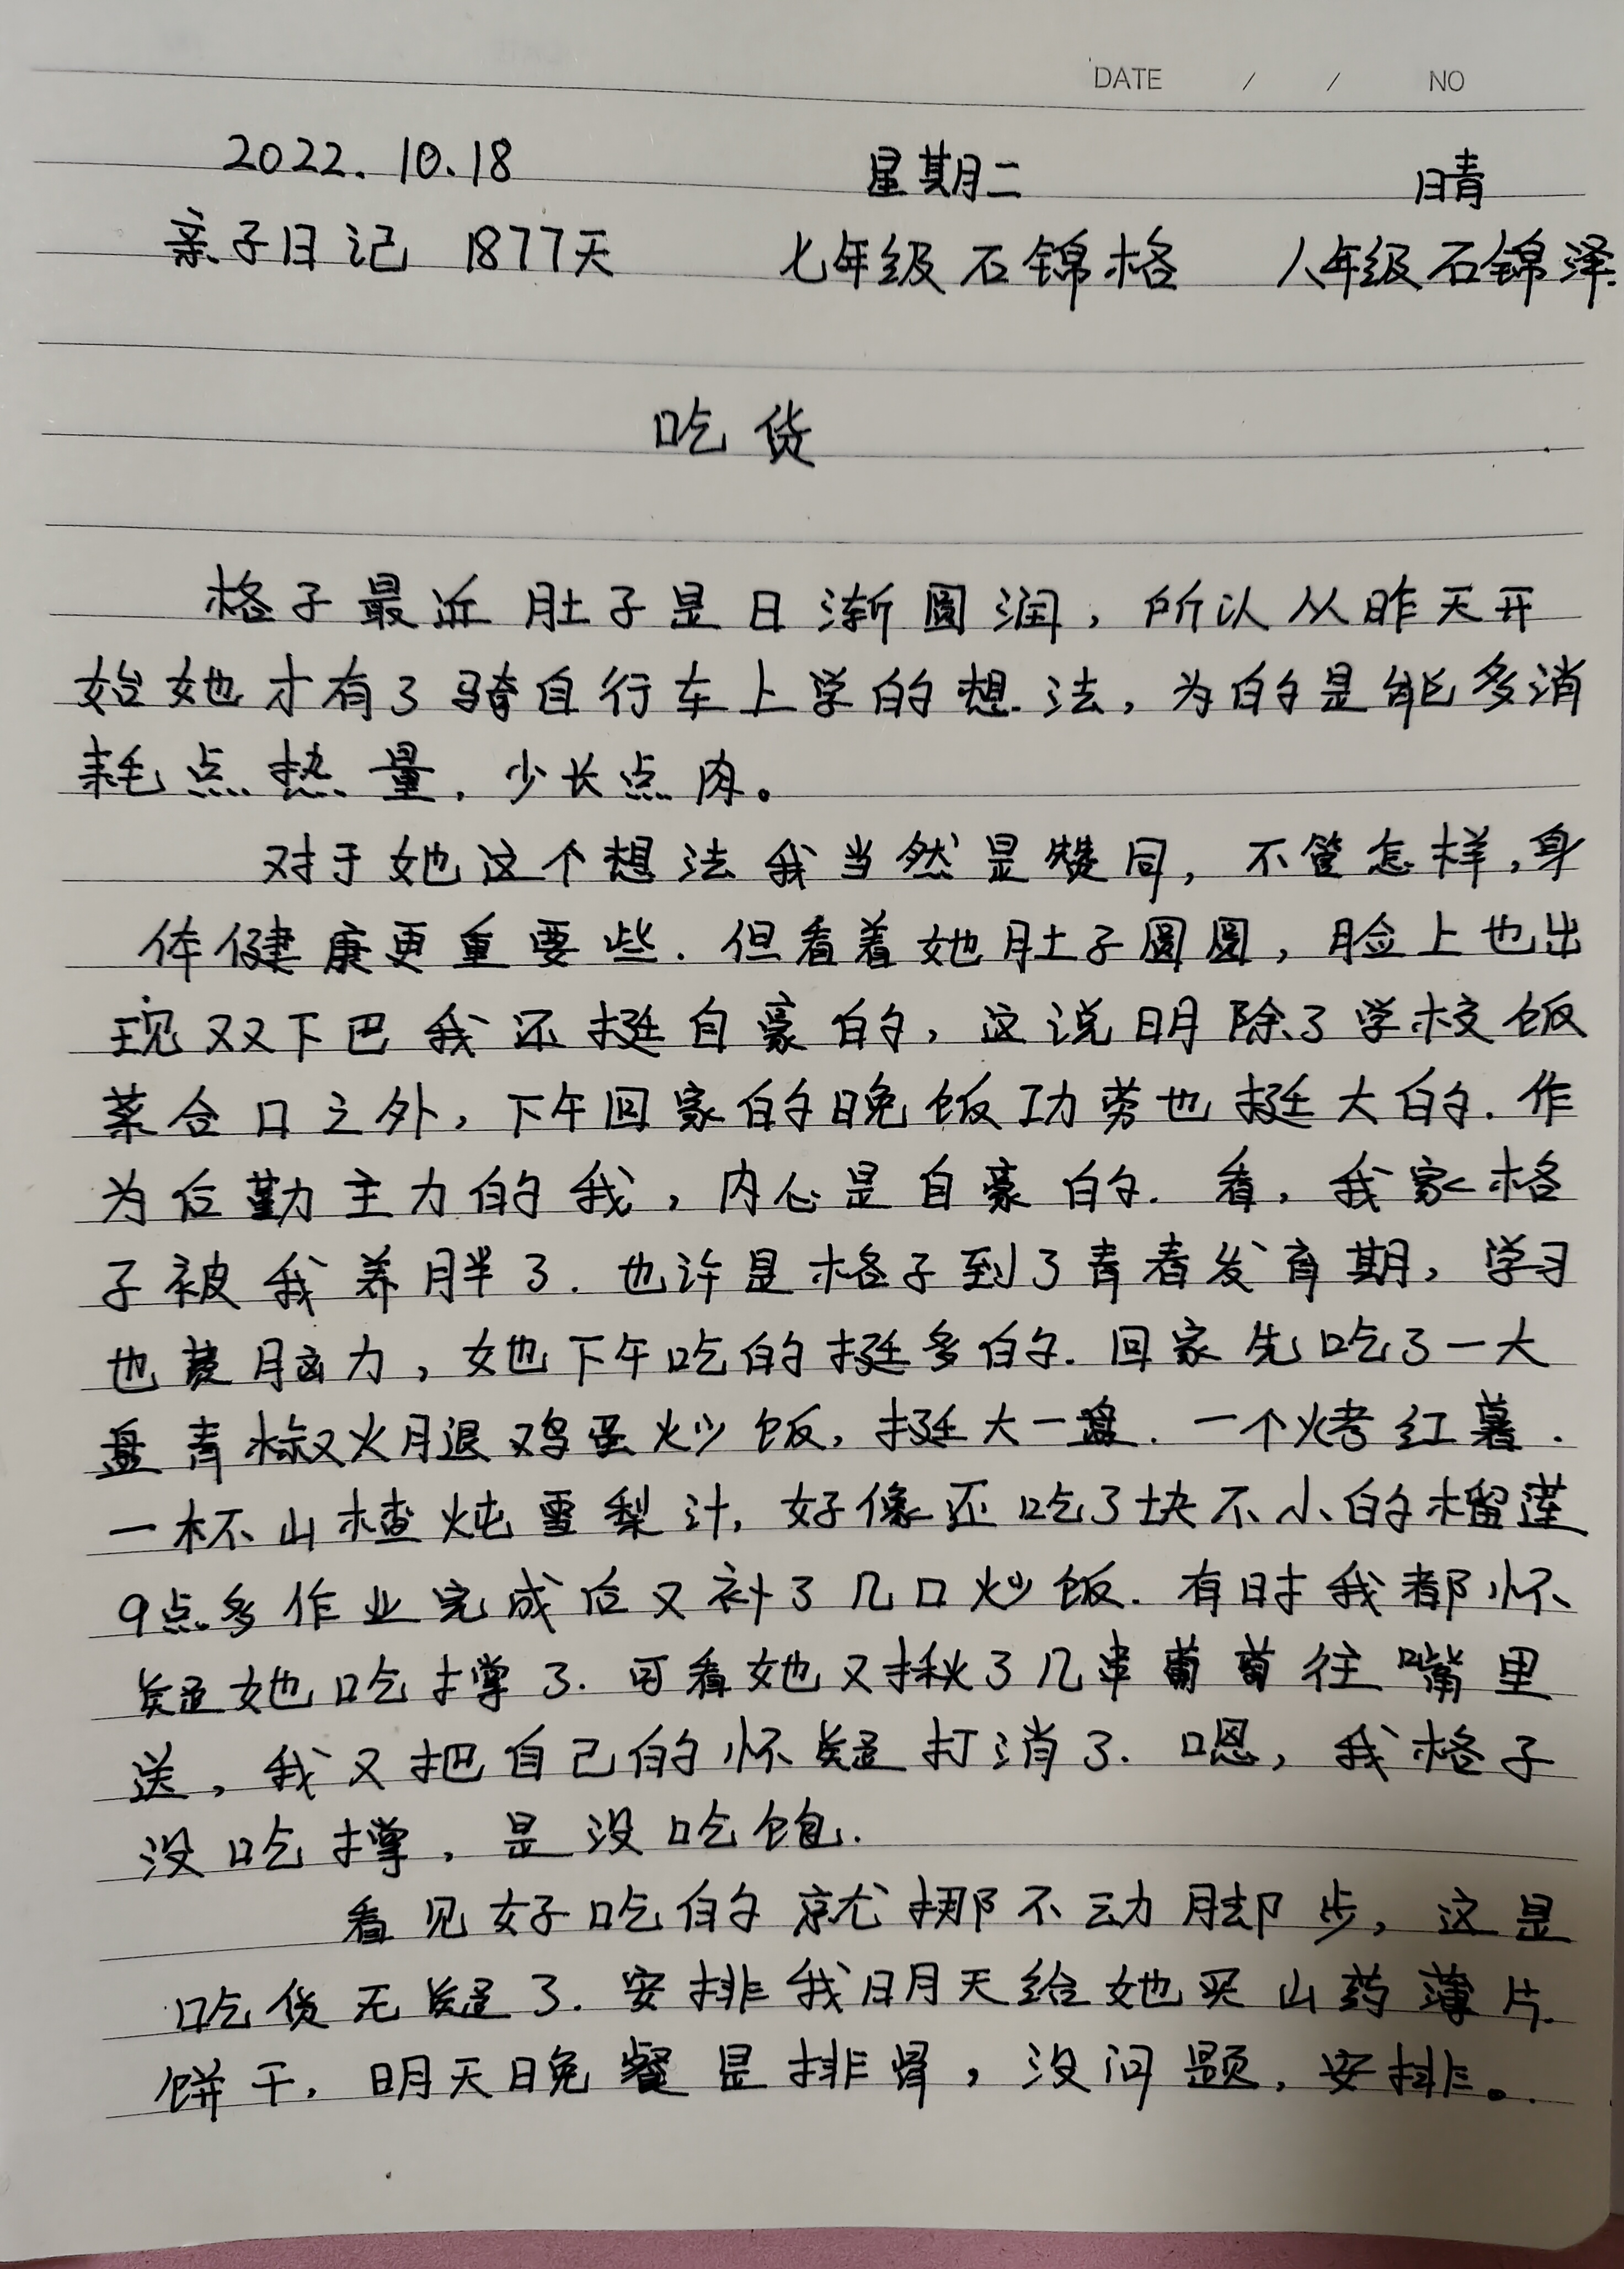 DATE / / NO
2022.10.18 星期二 晴
亲子日记 1877天 七年级石锦格 八年级石锦泽
吃货
格子最近肚子是日渐圆润，所以从昨天开
始她才有了骑自行车上学的想法，为的是能多消
耗点热量，少长点肉。
对于她这个想法我当然是赞同，不管怎样，身
体健康更重要些.但看着她肚子圆圆，脸上也出
现双下巴我还挺自豪的，这说明除了学校饭
菜合口之外，下午回家的晚饭功劳也挺大的.作
为后勤主力的我，内心是自豪的.看，我家格
子被我养胖了.也许是格子到了青春发育期，学习
也费脑力，她下午吃的挺多的.回家先吃了一大
盘青椒火腿鸡蛋炒饭，挺大一盘.一个烤红薯.
一杯山楂炖雪梨汁，好像还吃了块不小的榴莲
9点多作业完成后又补了几口炒饭.有时我都怀
疑她吃撑了.可看她又揪了几串葡萄往嘴里
送，我又把自己的怀疑打消了.嗯，我格子
没吃撑，是没吃饱.
看见好吃的就挪不动脚步，这是
吃货无疑了.安排我明天给她买山药薄片
饼干，明天晚餐是排骨，没问题，安排。